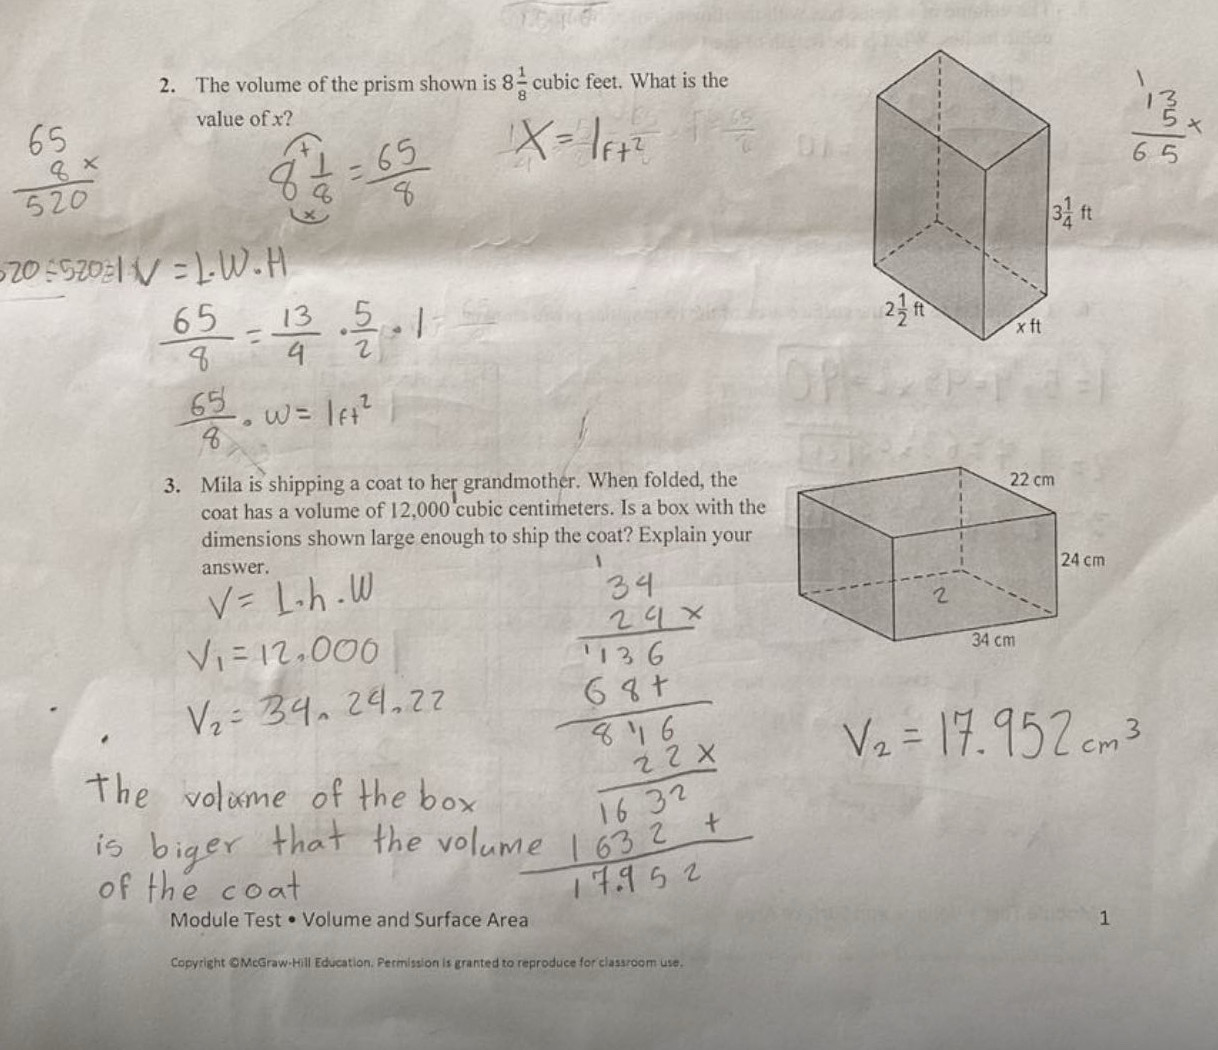 2. The volume of the prism shown is 8 1/8 cubic feet. What is the
value of x?
65
8 x
520
8 + 1/8 x = 65/8
X = 1 ft²
1
13
5 x
65
3 1/4 ft
2 1/2 ft
x ft
20 ÷ 520 = 1
V = L.W.H
65/8 = 13/4 . 5/2 . 1
65/8 . w = 1 ft²
3. Mila is shipping a coat to her grandmother. When folded, the
coat has a volume of 12,000 cubic centimeters. Is a box with the
dimensions shown large enough to ship the coat? Explain your
answer.
22 cm
24 cm
2
34 cm
V = L.h.W
V₁ = 12.000
V₂ = 34. 24. 22
1
34
24 x
1136
68 +
816
22 x
1632
1632 +
17.952
V₂ = 17.952 cm³
The volume of the box
is biger that the volume
of the coat
Module Test • Volume and Surface Area
1
Copyright ©McGraw-Hill Education. Permission is granted to reproduce for classroom use.